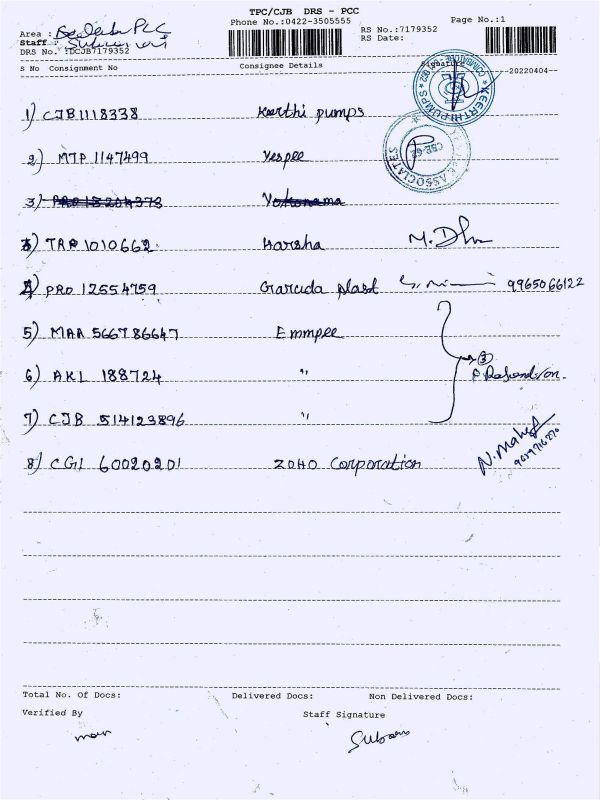 TPC/CJB DRS - PCC
Phone No.:0422-3505555
Page No.:1
RS No.:7179352
RS Date:
Area : PCC
Staff :
DRS No. :DCJB7179352
S No Consignment No Consignee Details Signature
20220404
1) CJB1118338 Keerthi pumps
KEERTHI PUMPS
2) MTP 1147499 Vespee
ASSOCIATES
3) PRO 13204373 Yokonama
3) TRP 1010662 Harsha
4) PRO 12554759 Garuda plast 9965066122
5) MAA 566786647 Emmpee
6) AKL 188724 "
7) CJB 514123896 "
8) CGI 60020201 ZOHO Corporation N. Mahesh
Total No. Of Docs: Delivered Docs: Non Delivered Docs:
Verified By Staff Signature